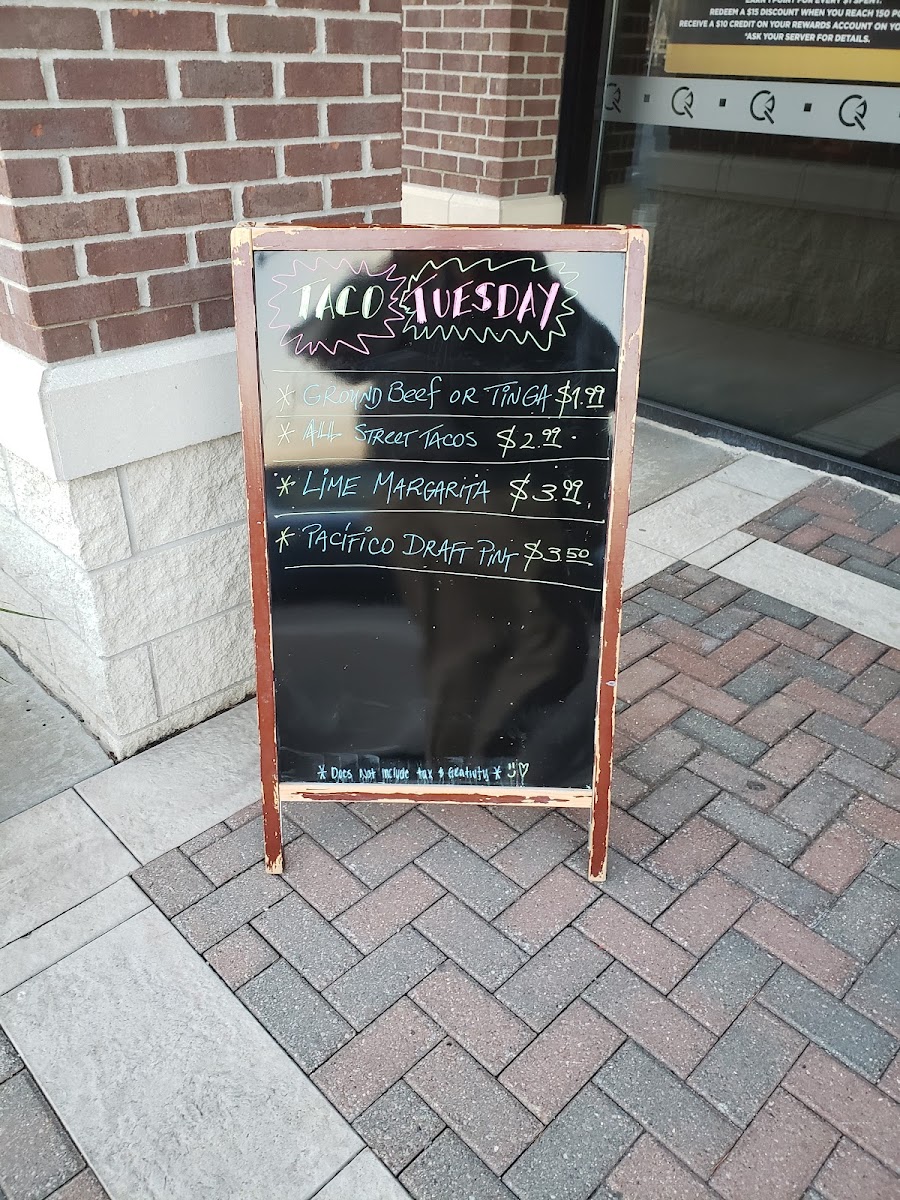 EARN 1 POINT FOR EVERY $1 SPENT.
REDEEM A $15 DISCOUNT WHEN YOU REACH 150 PO
RECEIVE A $10 CREDIT ON YOUR REWARDS ACCOUNT ON YO
*ASK YOUR SERVER FOR DETAILS.
TACO TUESDAY
* GROUND Beef OR TINGA $1.99
* ALL STREET TACOS $2.99.
* LIME MARGARITA $3.99.
* PACÍFICO DRAFT PINT $3.50
* Does Not include tax & Gratiuty *